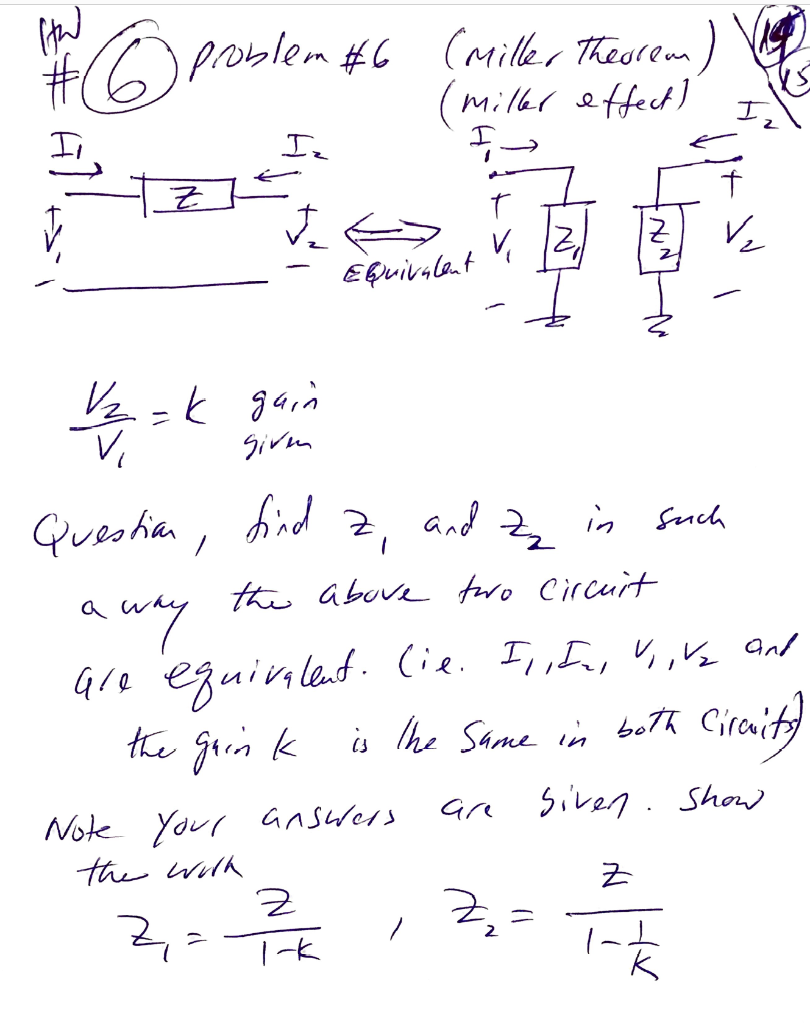 HW
#6 problem #6 (Miller Theorem) 14
(miller effect) 15
I1 I2 I1 I2
Z
+ + + +
V1 V2 V1 Z1 Z2 V2
- - - -
Equivalent
V2/V1 = k gain
given
Question, find Z1 and Z2 in such
a way the above two circuit
are equivalent. (ie. I1, I2, V1, V2 and
the gain k is the same in both circuits)
Note your answers are given. Show
the work
Z1 = Z/(1-k) , Z2 = Z/(1-1/k)